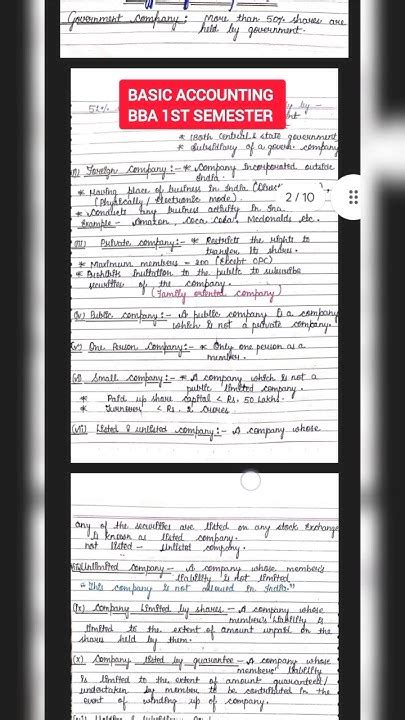 Government Company: More than 50% shares are
held by government.
BASIC ACCOUNTING
BBA 1ST SEMESTER
51% by -
* Both Central & state government
* Subsidiary of a govern. company
(ii) Foreign Company :- * Company Incorporated outside
India.
* Having place of business in India
(Physically / Electronic mode).
2 / 10
* Conducts any business activity in
Example - Amazon, Coca Cola, Mcdonalds etc.
(iii) Private Company :- * Restricts the rights to
transfer its shares.
* Maximum members = 200 (Except OPC)
* Prohibits Invitation to the public to subscribe
securities of the company.
(Family oriented company)
(iv) Public Company :- A public company is a company
which is not a private company.
(v) One Person Company :- * Only one person as a
member.
(vi) Small Company :- * A company which is not a
public limited company.
* Paid up share capital < Rs. 50 Lakhs.
* Turnover < Rs. 2 Crores
(vii) Listed & unlisted Company :- A company whose
any of the securities are listed on any stock exchange
is known as listed company.
not listed - Unlisted company.
Unlimited Company - A company whose member's
liability is not limited
"This company is not allowed in India."
(ix) Company limited by shares - A company whose
member's liability is
limited to the extent of amount unpaid on the
shares held by them.
(x) Company listed by guarantee - A company whose
members' liability
is limited to the extent of amount guaranteed/
undertaken by member to be contributed in the
event of winding up of company.